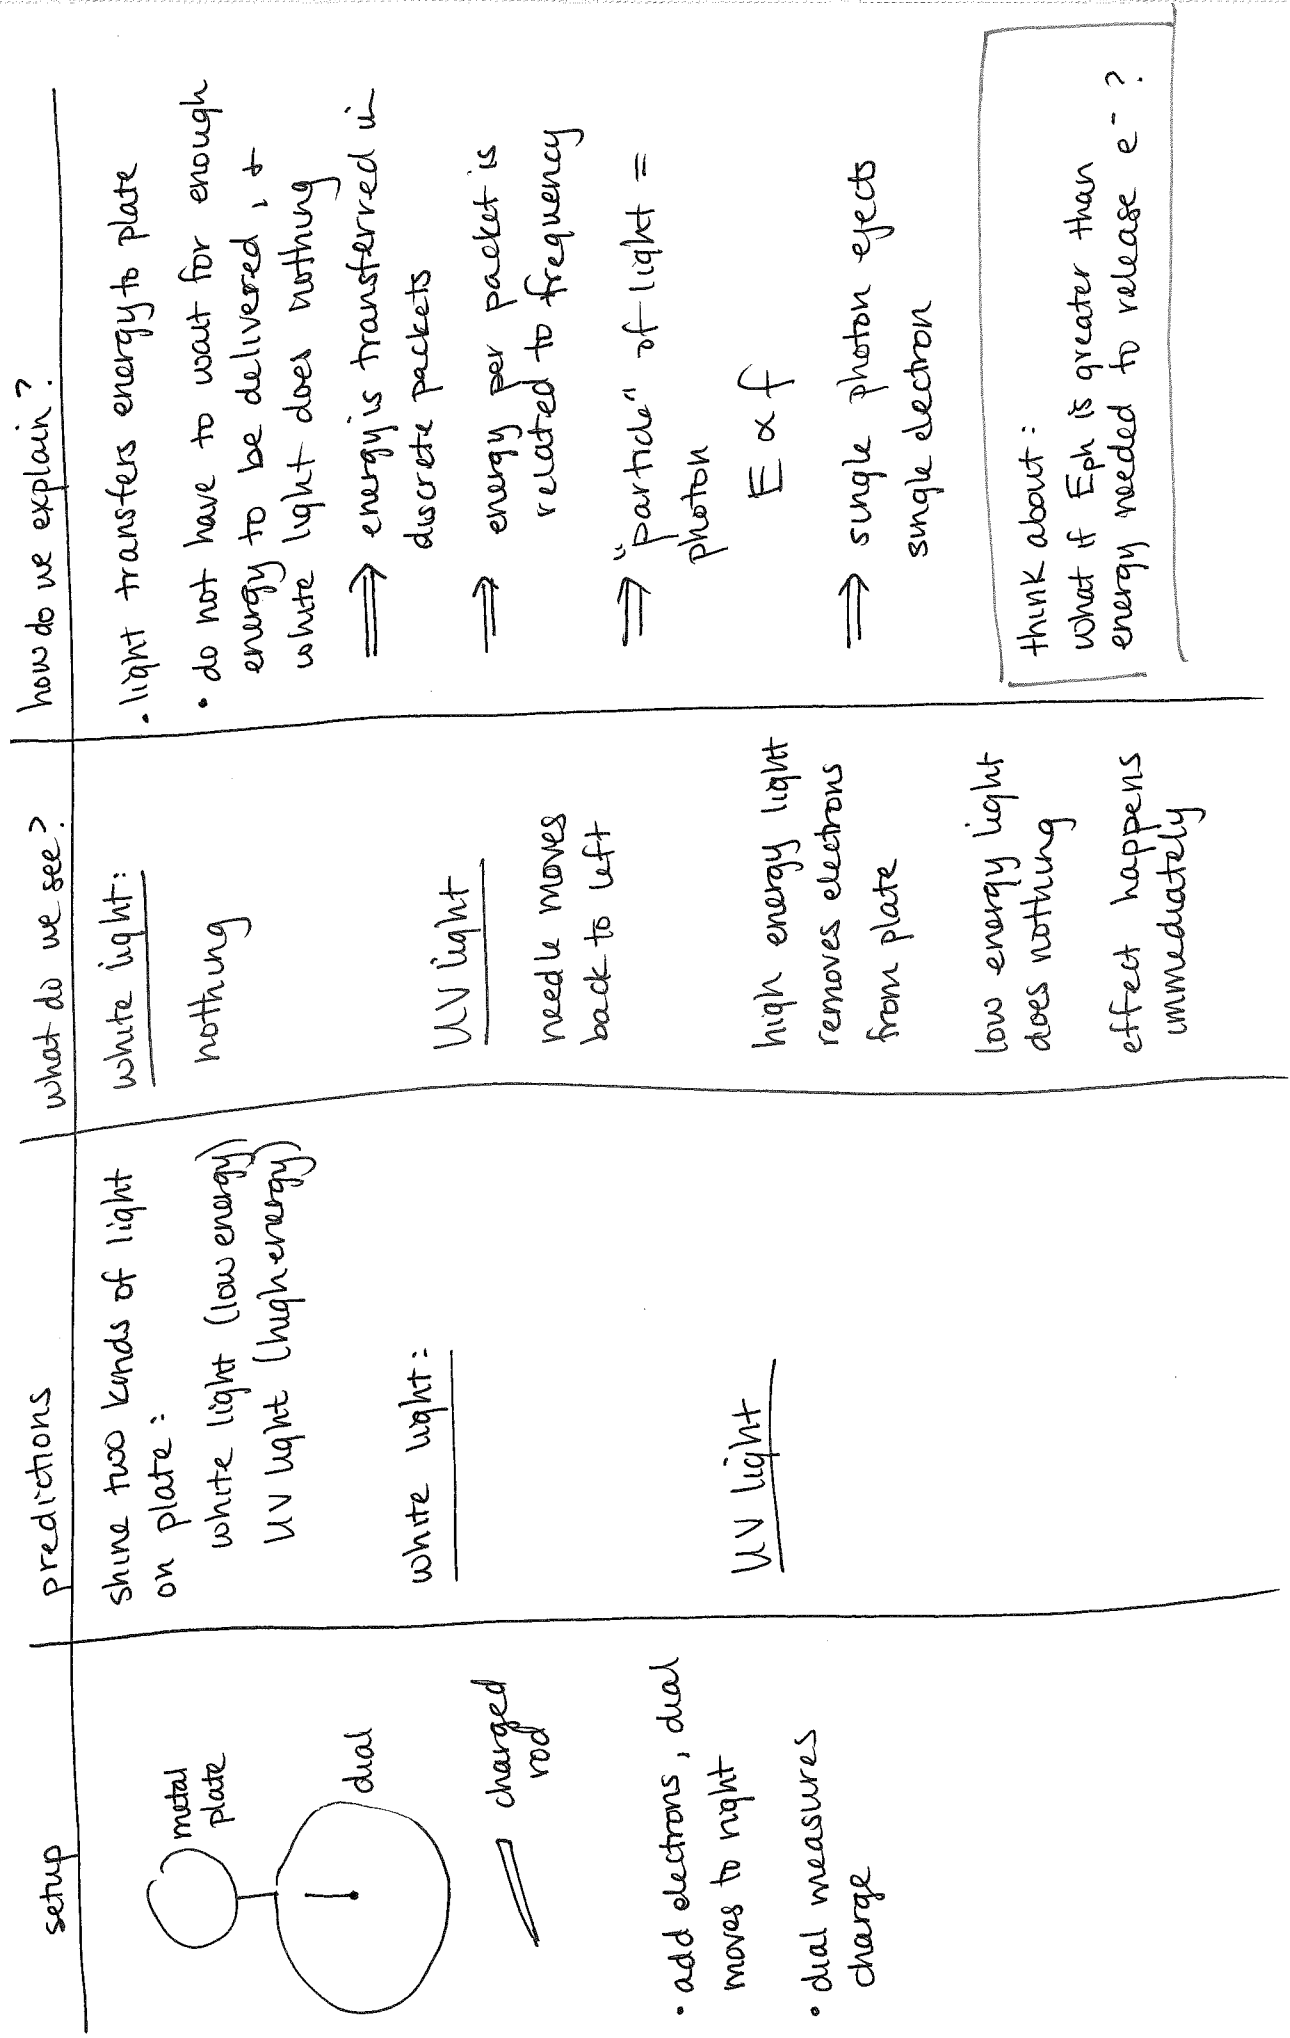 setup
metal
plate
dial
charged
rod
• add electrons, dial
moves to right
• dial measures
charge
predictions
shine two kinds of light
on plate:
white light (low energy)
UV light (high energy)
white light:
UV light
what do we see?
white light:
nothing
UV light
needle moves
back to left
high energy light
removes electrons
from plate
low energy light
does nothing
effect happens
immediately
how do we explain?
• light transfers energy to plate
• do not have to wait for enough
energy to be delivered, +
white light does nothing
⇒ energy is transferred in
discrete packets
⇒ energy per packet is
related to frequency
⇒ "particle" of light =
photon
E ∝ f
⇒ single photon ejects
single electron
think about:
what if Eph is greater than
energy needed to release e⁻?